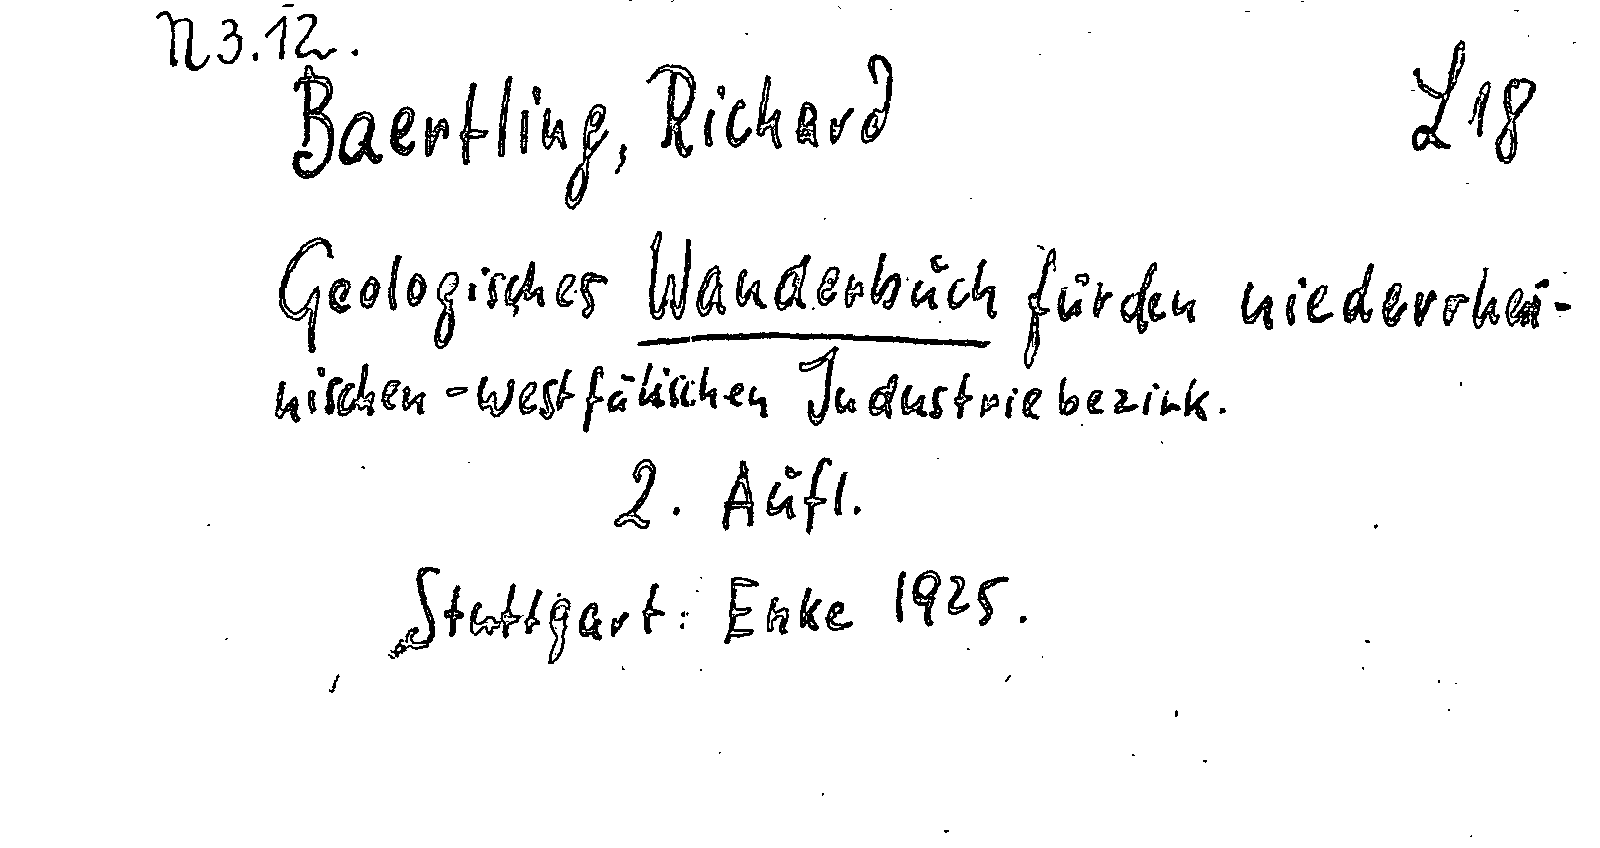 N 3.12.
Baertling, Richard
L 18
Geologisches Wanderbuch für den niederrhei-
nischen-westfälischen Industriebezirk.
2. Aufl.
Stuttgart: Enke 1925.